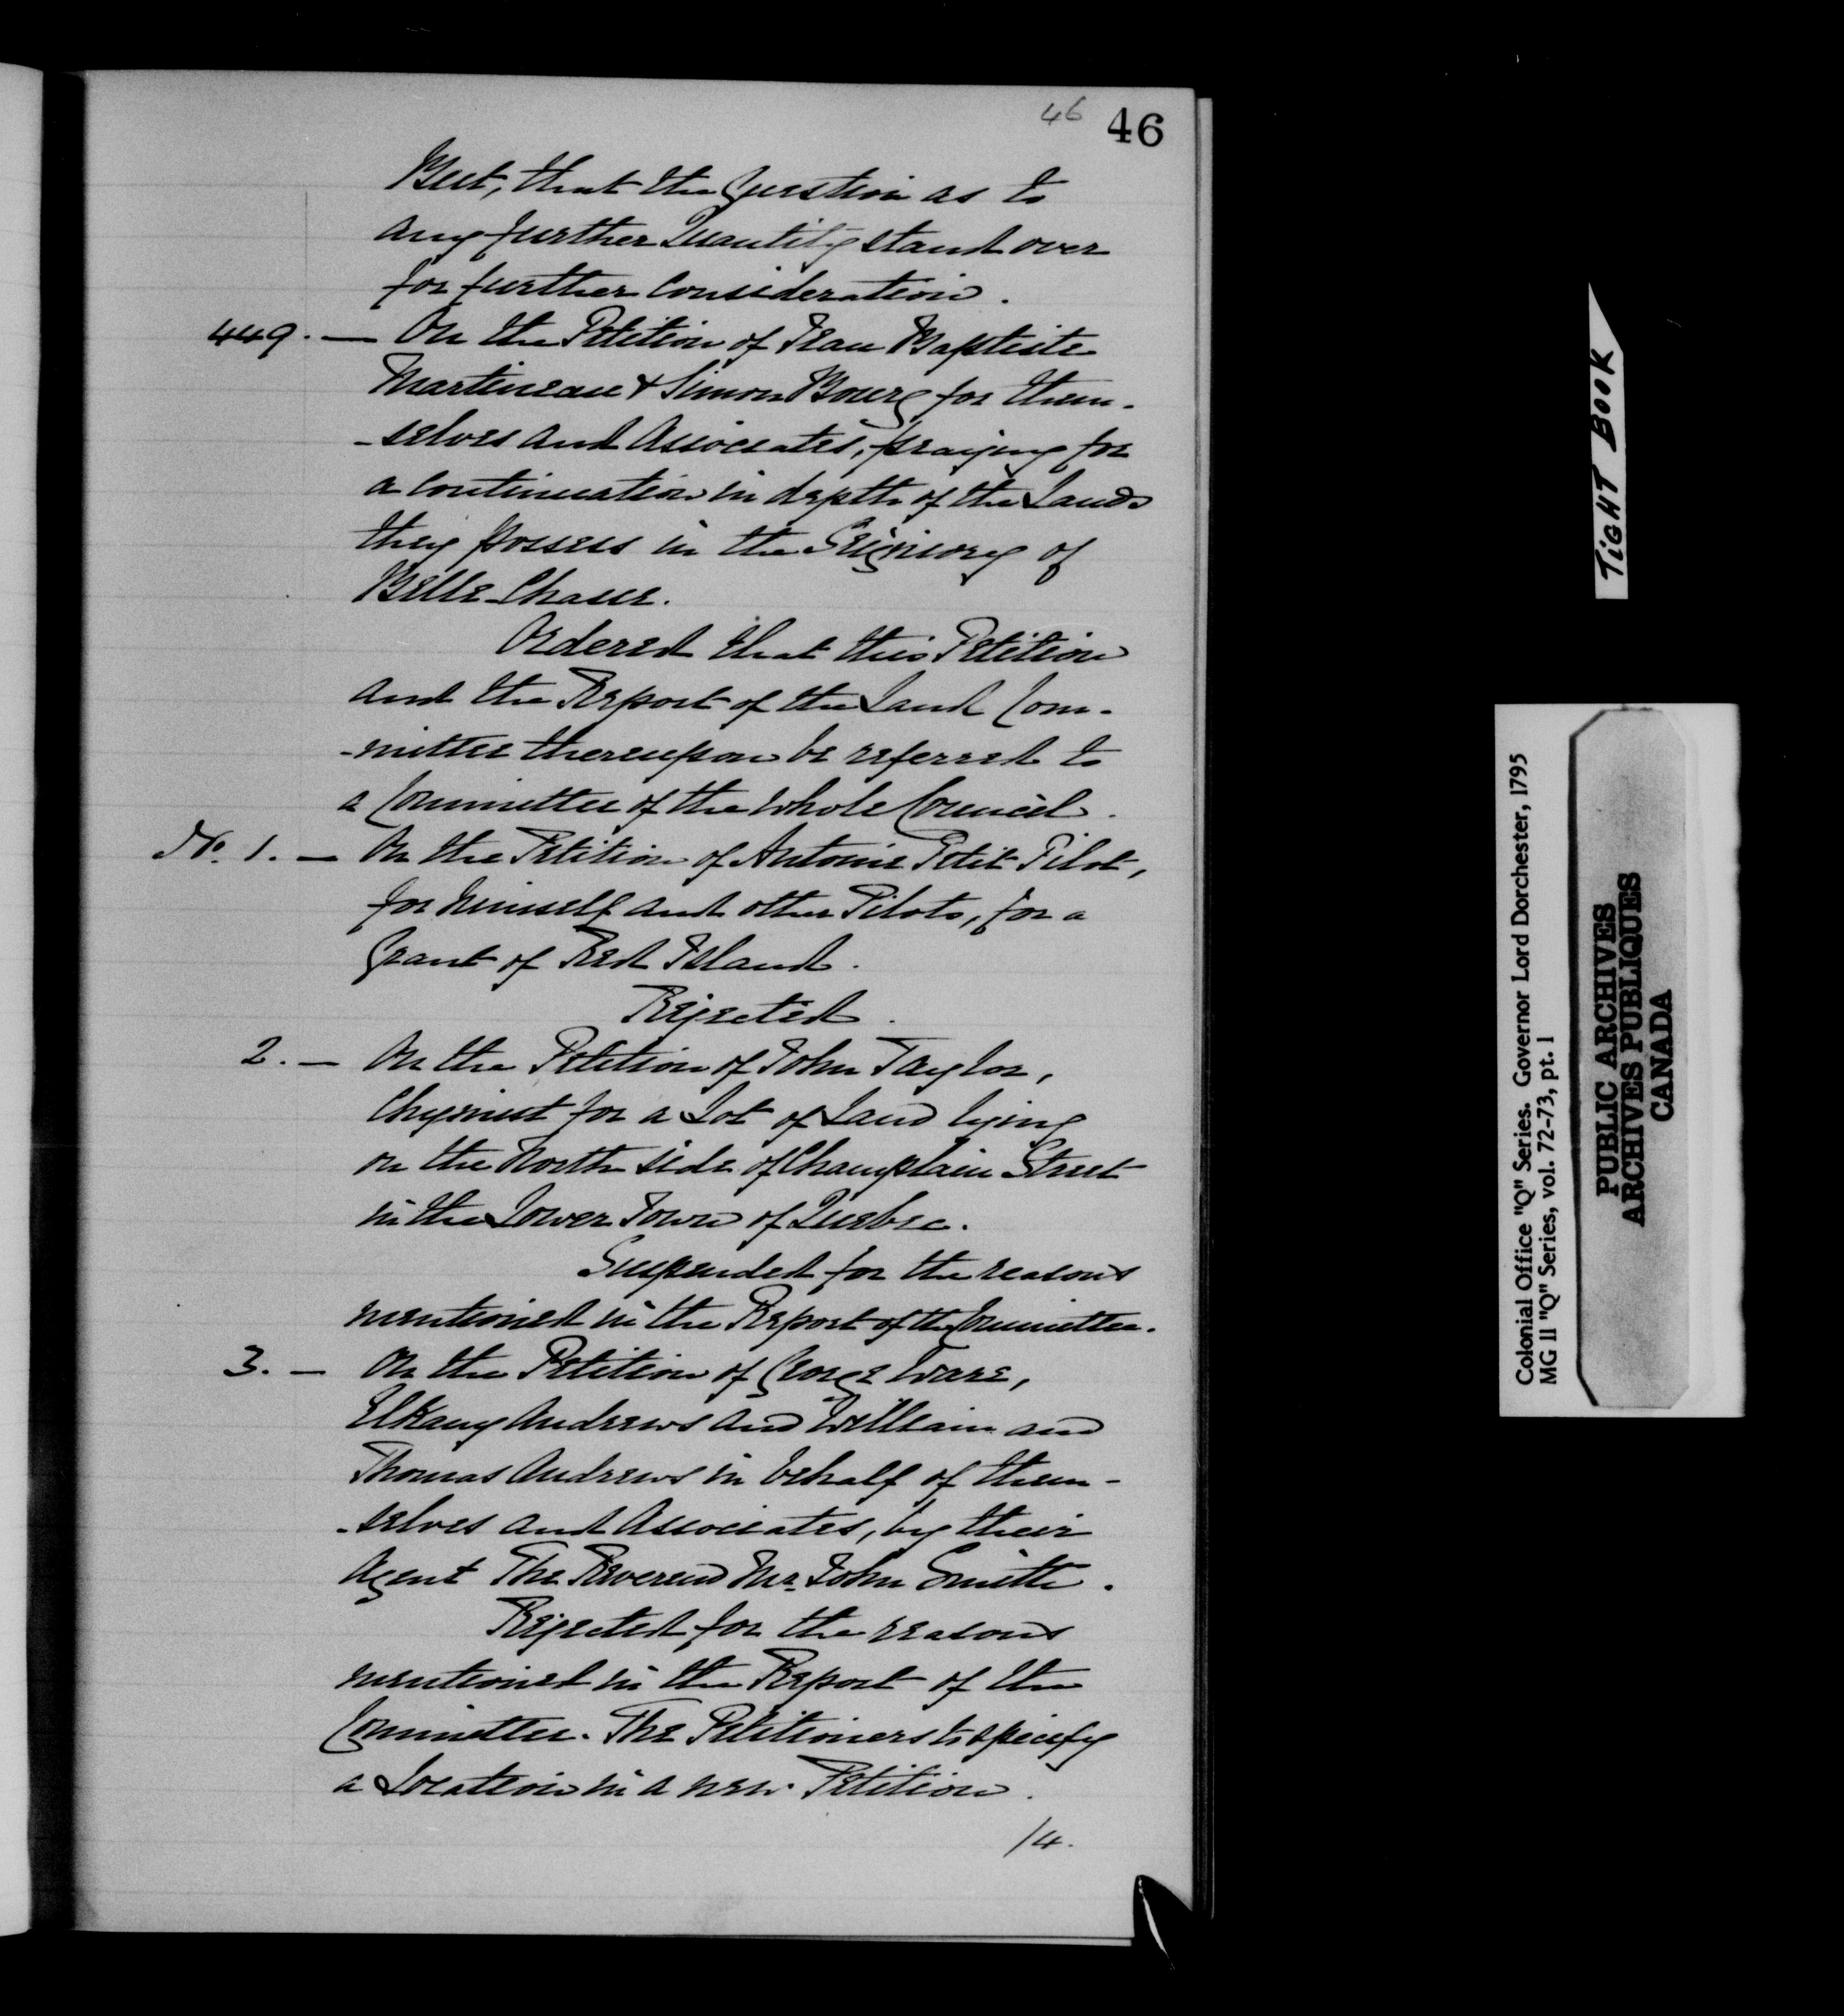 46 46
But, that the Question as to
any further Quantity stand over
for further Consideration.
449. — On the Petition of Jean Baptiste
Martineau & Simon Bourg for them-
-selves and Associates, praying for
a Continuation in depth of the Lands
they possess in the Seigniory of
Belle-Chasse.
Ordered that this Petition
and the Report of the Land Com-
-mittee thereupon be referred to
a Committee of the whole Council.
No. 1. — On the Petition of Antoine Petit Pilot,
for himself and other Pilots, for a
Grant of Red Island.
Rejected.
2. — On the Petition of John Taylor,
Chymist for a Lot of Land lying
on the North side of Champlain Street
in the Lower Town of Quebec.
Suspended for the reasons
mentioned in the Report of the Committee.
3. — On the Petition of George Ware,
Elkany Andrews and William and
Thomas Andrews in behalf of them-
-selves and Associates, by their
Agent The Reverend Mr. John Smith.
Rejected for the reasons
mentioned in the Report of the
Committee. The Petitioners to specify
a Location in a new Petition.
/4.
TIGHT BOOK
Colonial Office "Q" Series. Governor Lord Dorchester, 1795
MG 11 "Q" Series, vol. 72-73, pt. 1
PUBLIC ARCHIVES
ARCHIVES PUBLIQUES
CANADA